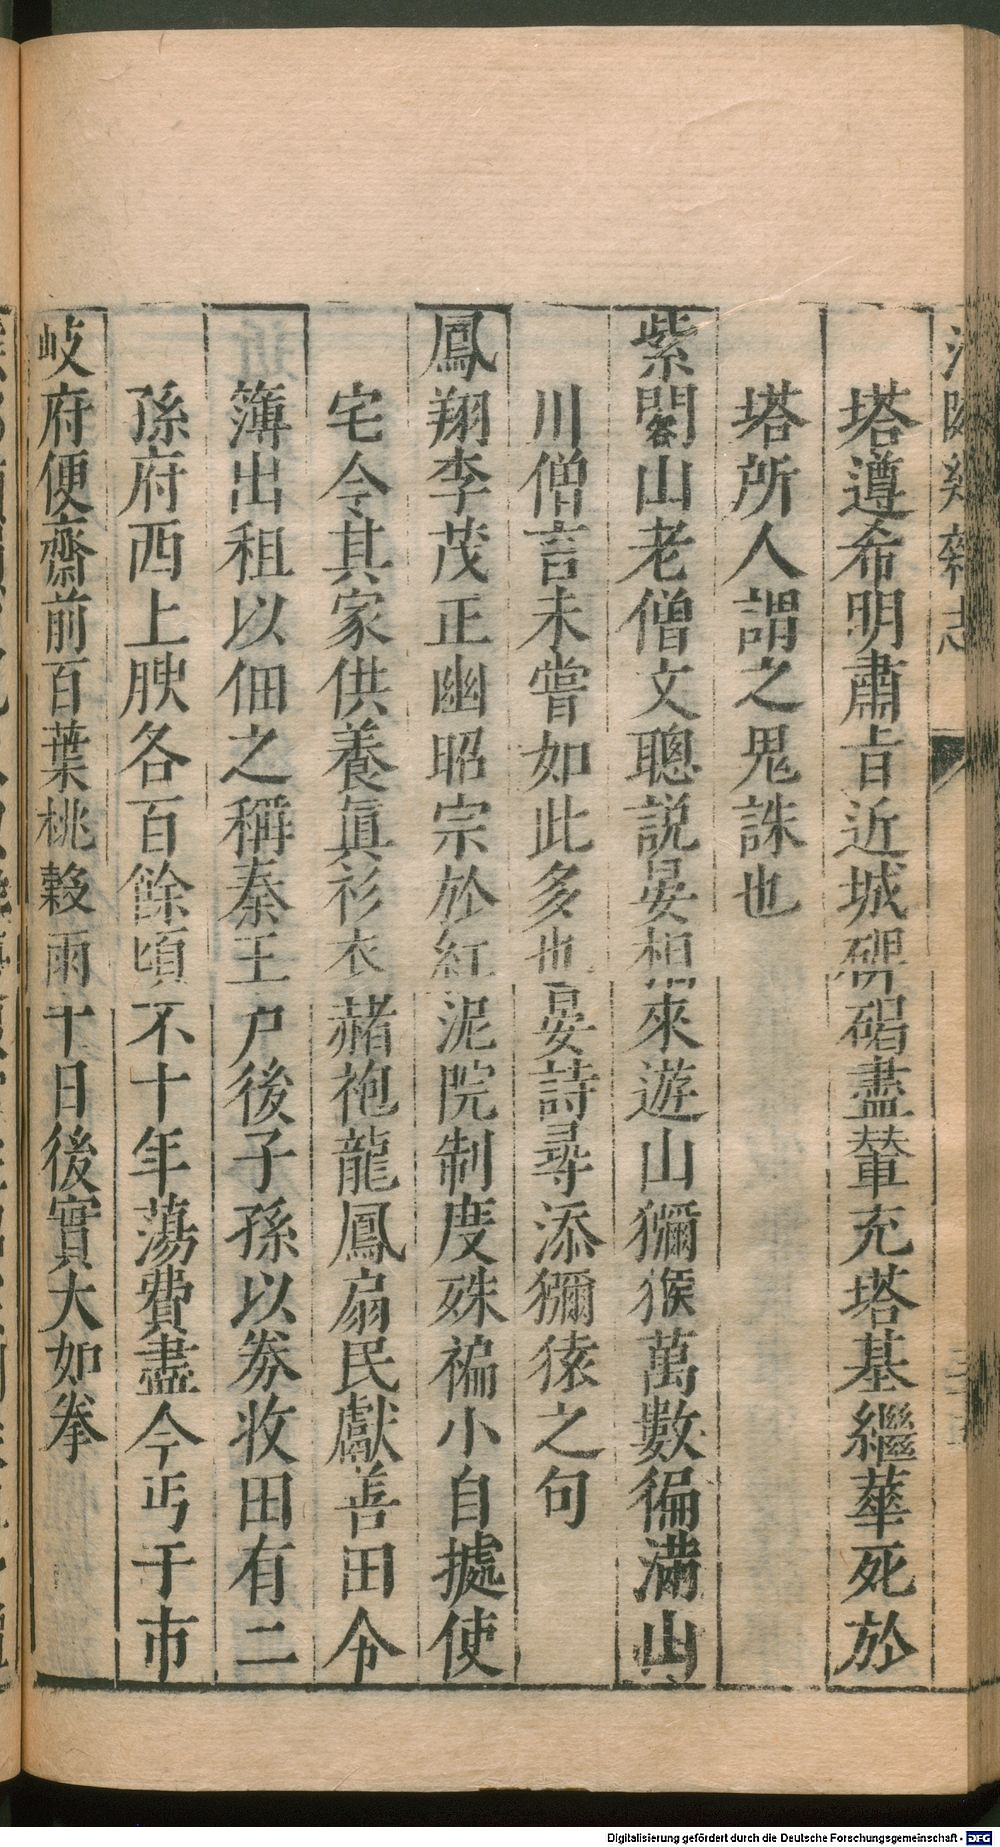 塔遵希明肅㫖近城碑碣盡輦充塔基繼華死於
塔所人謂之鬼誅也
紫閣山老僧文聰説晏相來遊山獼猴萬數徧滿山
川僧言未嘗如此多也晏詩尋添獼猿之句
鳳翔李茂正幽昭宗於紅泥院制度殊褊小自據使
宅令其家供養眞衫衣赭袍龍鳳扇民獻善田令
簿出租以佃之稱秦王户後子孫以券收田有二
孫府西上腴各百餘頃不十年蕩費盡今丐于市
岐府便齋前百葉桃穀雨十日後實大如拳
Digitalisierung gefördert durch die Deutsche Forschungsgemeinschaft - DFG